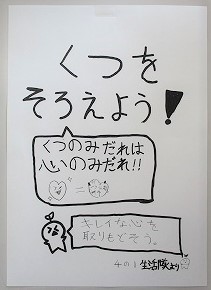 くつを
そろえよう!
くつのみだれは
心のみだれ!!
=
キレイな心を
取りもどそう。
4の1 生活隊より